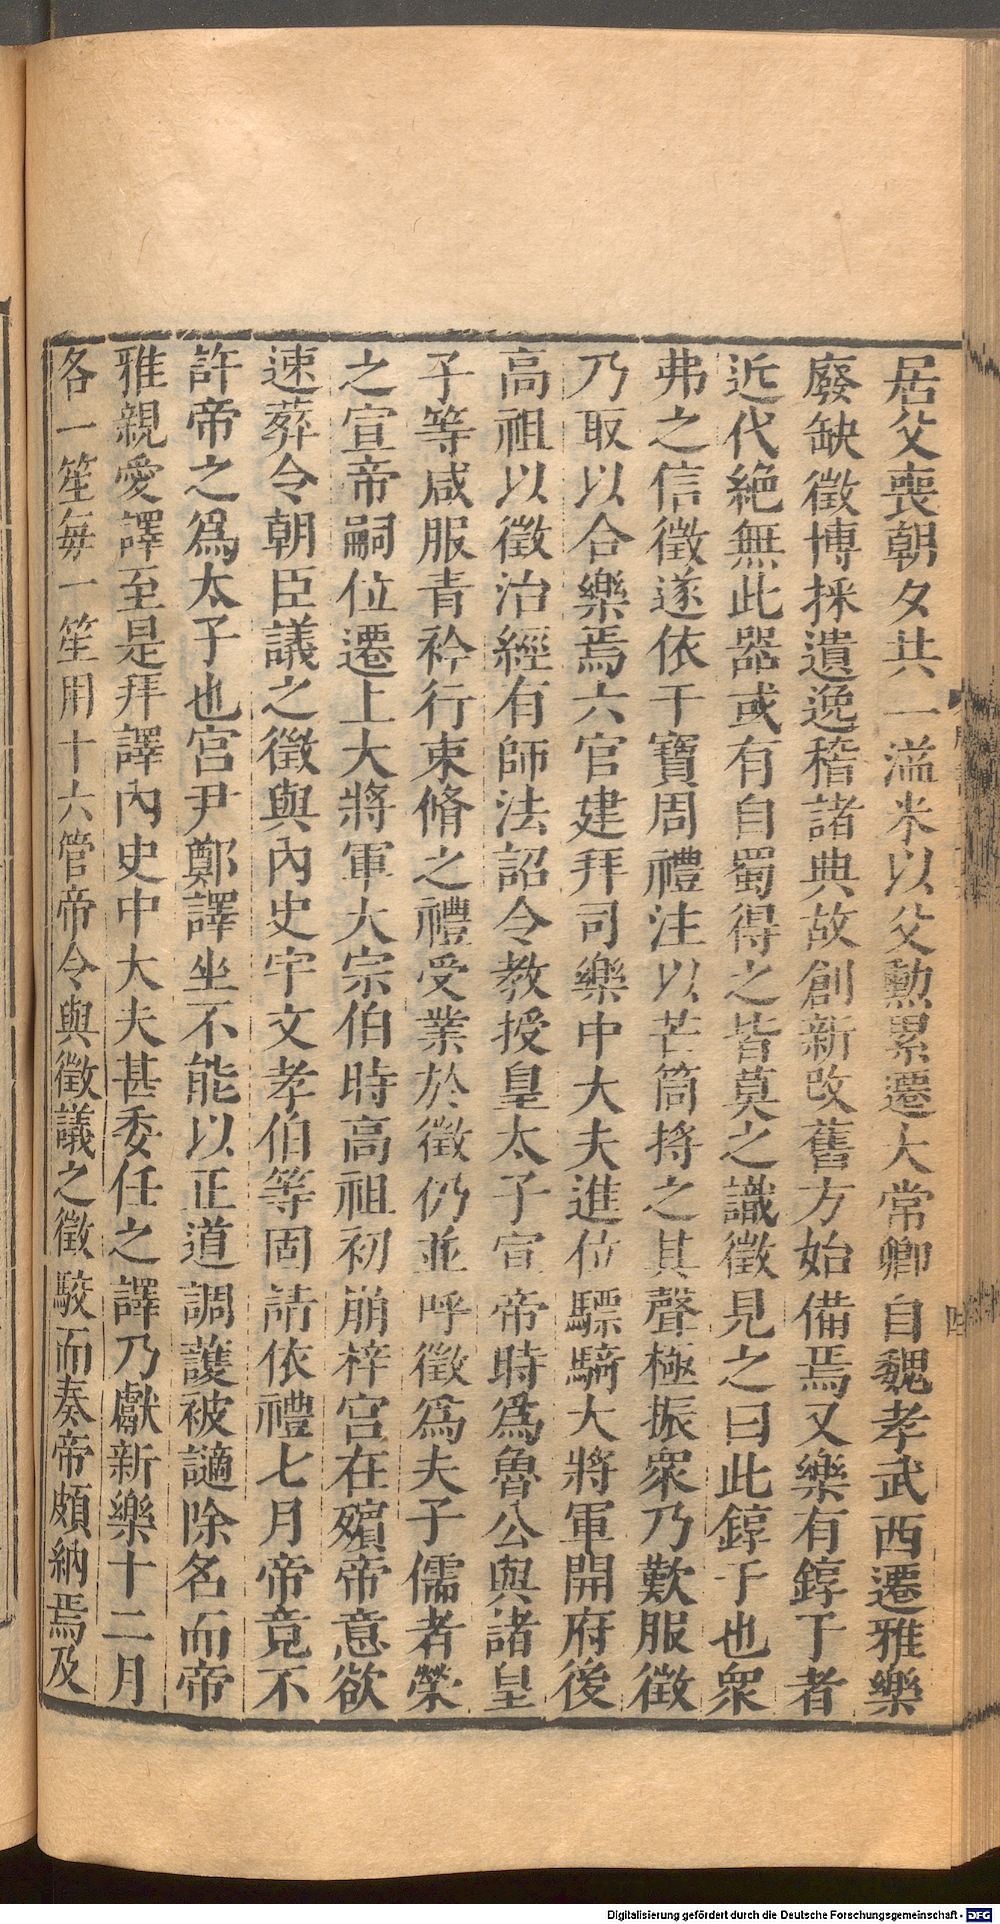 居父喪朝夕共一溢米以父勲累遷大常卿自魏孝武西遷雅樂
廢缺徵博採遺逸稽諸典故創新改舊方始備焉又樂有錞于者
近代絶無此器或有自蜀得之皆莫之識徵見之曰此錞于也衆
弗之信徵遂依干寶周禮注以芒筒捋之其聲極振衆乃歎服徵
乃取以合樂焉六官建拜司樂中大夫進位驃騎大將軍開府後
高祖以徵治經有師法詔令教授皇太子宣帝時爲魯公與諸皇
子等咸服青衿行束脩之禮受業於徵仍並呼徵爲夫子儒者榮
之宣帝嗣位遷上大將軍大宗伯時高祖初崩梓宫在殯帝意欲
速葬令朝臣議之徵與內史宇文孝伯等固請依禮七月帝竟不
許帝之爲太子也宮尹鄭譯坐不能以正道調護被謫除名而帝
雅親愛譯至是拜譯內史中大夫甚委任之譯乃獻新樂十二月
各一笙每一笙用十六管帝令與徵議之徵駮而奏帝頗納焉及
Digitalisierung gefördert durch die Deutsche Forschungsgemeinschaft - DFG